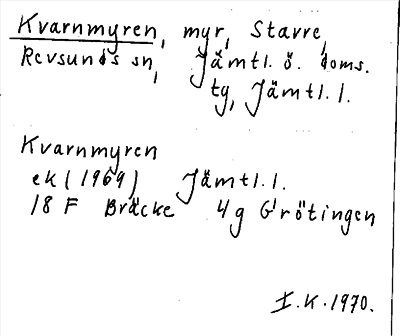 Kvarnmyren, myr, Stavre,
Revsunds sn, Jämtl. ö. doms.
tg, Jämtl. l.
Kvarnmyren
ek (1969) Jämtl. l.
18 F Bräcke 4g Grötingen
I.K. 1970.